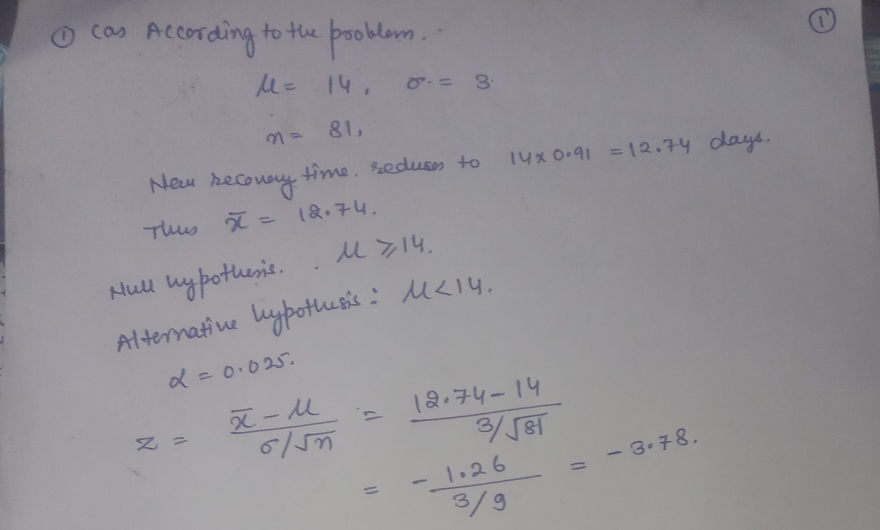 ① (a) According to the problem. ①
μ = 14, σ = 3
n = 81,
New recovery time. reduces to 14 x 0.91 = 12.74 days.
Thus x̄ = 12.74.
Null hypothesis. μ ⩾ 14.
Alternative hypothesis: μ < 14.
α = 0.025.
z = (x̄ - μ)/(σ/√n) = (12.74 - 14)/(3/√81)
= - 1.26/(3/9) = - 3.78.